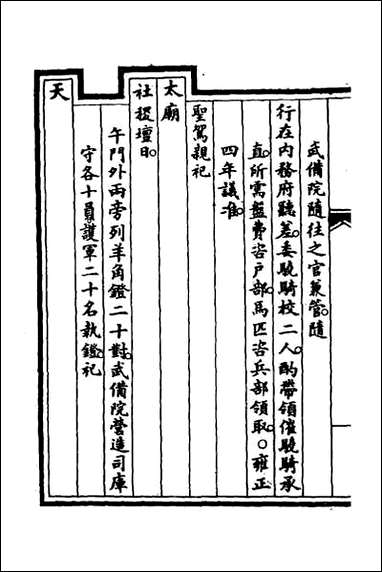 武備院隨往之官兼管隨
行在內務府聽差委驍騎校二人酌帶領催驍騎承
直所需盤費咨戶部馬匹咨兵部領取○雍正
四年議准
聖駕親祀
太廟
社稷壇日
午門外兩旁列羊角鐙二十對武備院營造司庫
守各十員護軍二十名執鐙祀
天